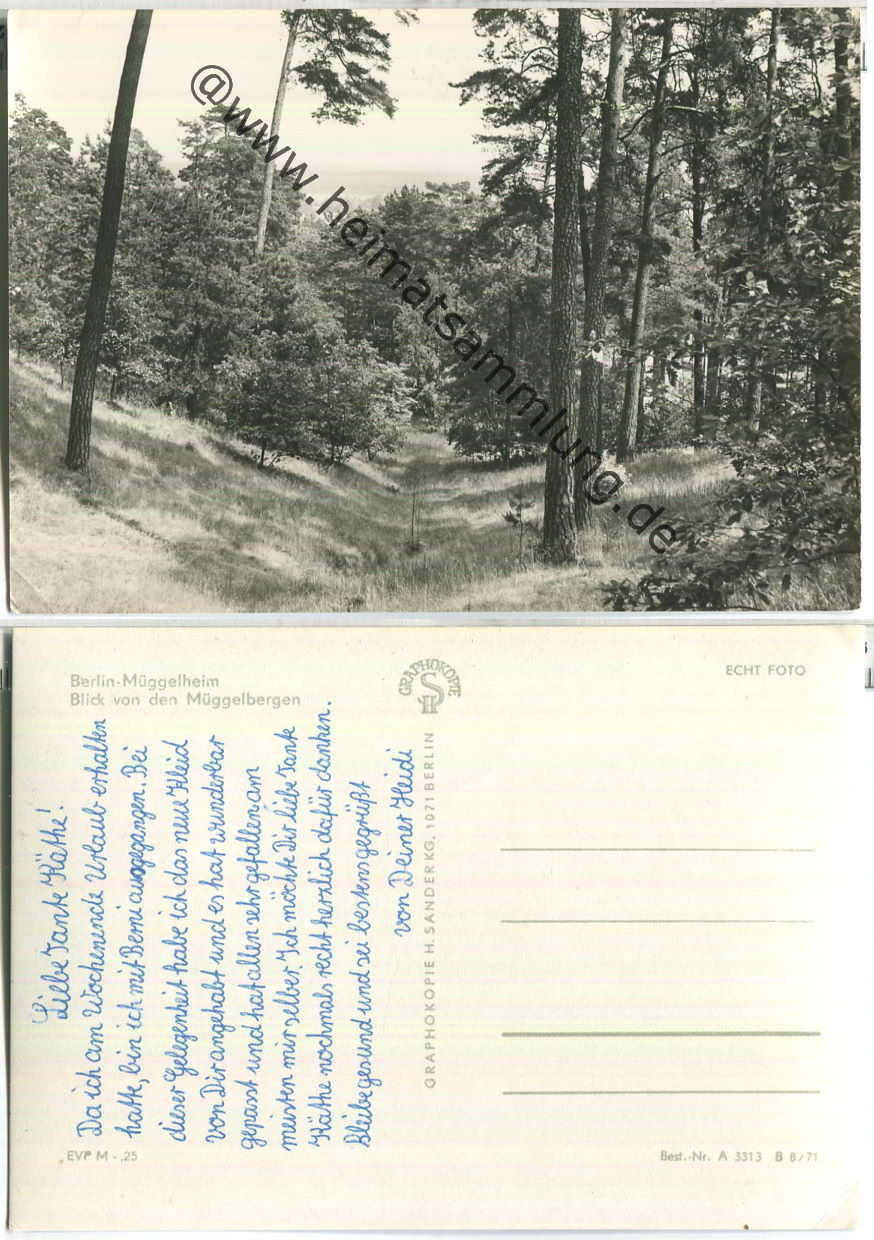 @www.heimatsammlung.de
Berlin-Müggelheim
Blick von den Müggelbergen
GRAPHOKOPIE
HS
ECHT FOTO
Liebe Tante Käthe!
Da ich am Wochenende Urlaub erhalten
hatte, bin ich mit Berni ausgegangen. Bei
dieser Gelegenheit habe ich das neue Kleid
von Dir angehabt und es hat wunderbar
gepasst und hat allen sehr gefallen am
meisten mir selber. Ich möchte Dir liebe Tante
Käthe nochmals recht herzlich dafür danken.
Bleibe gesund und sei bestens gegrüßt
von Deiner Heidi
GRAPHOKOPIE H. SANDER KG, 1071 BERLIN
EVP M -,25
Best.-Nr. A 3313 B 8/71